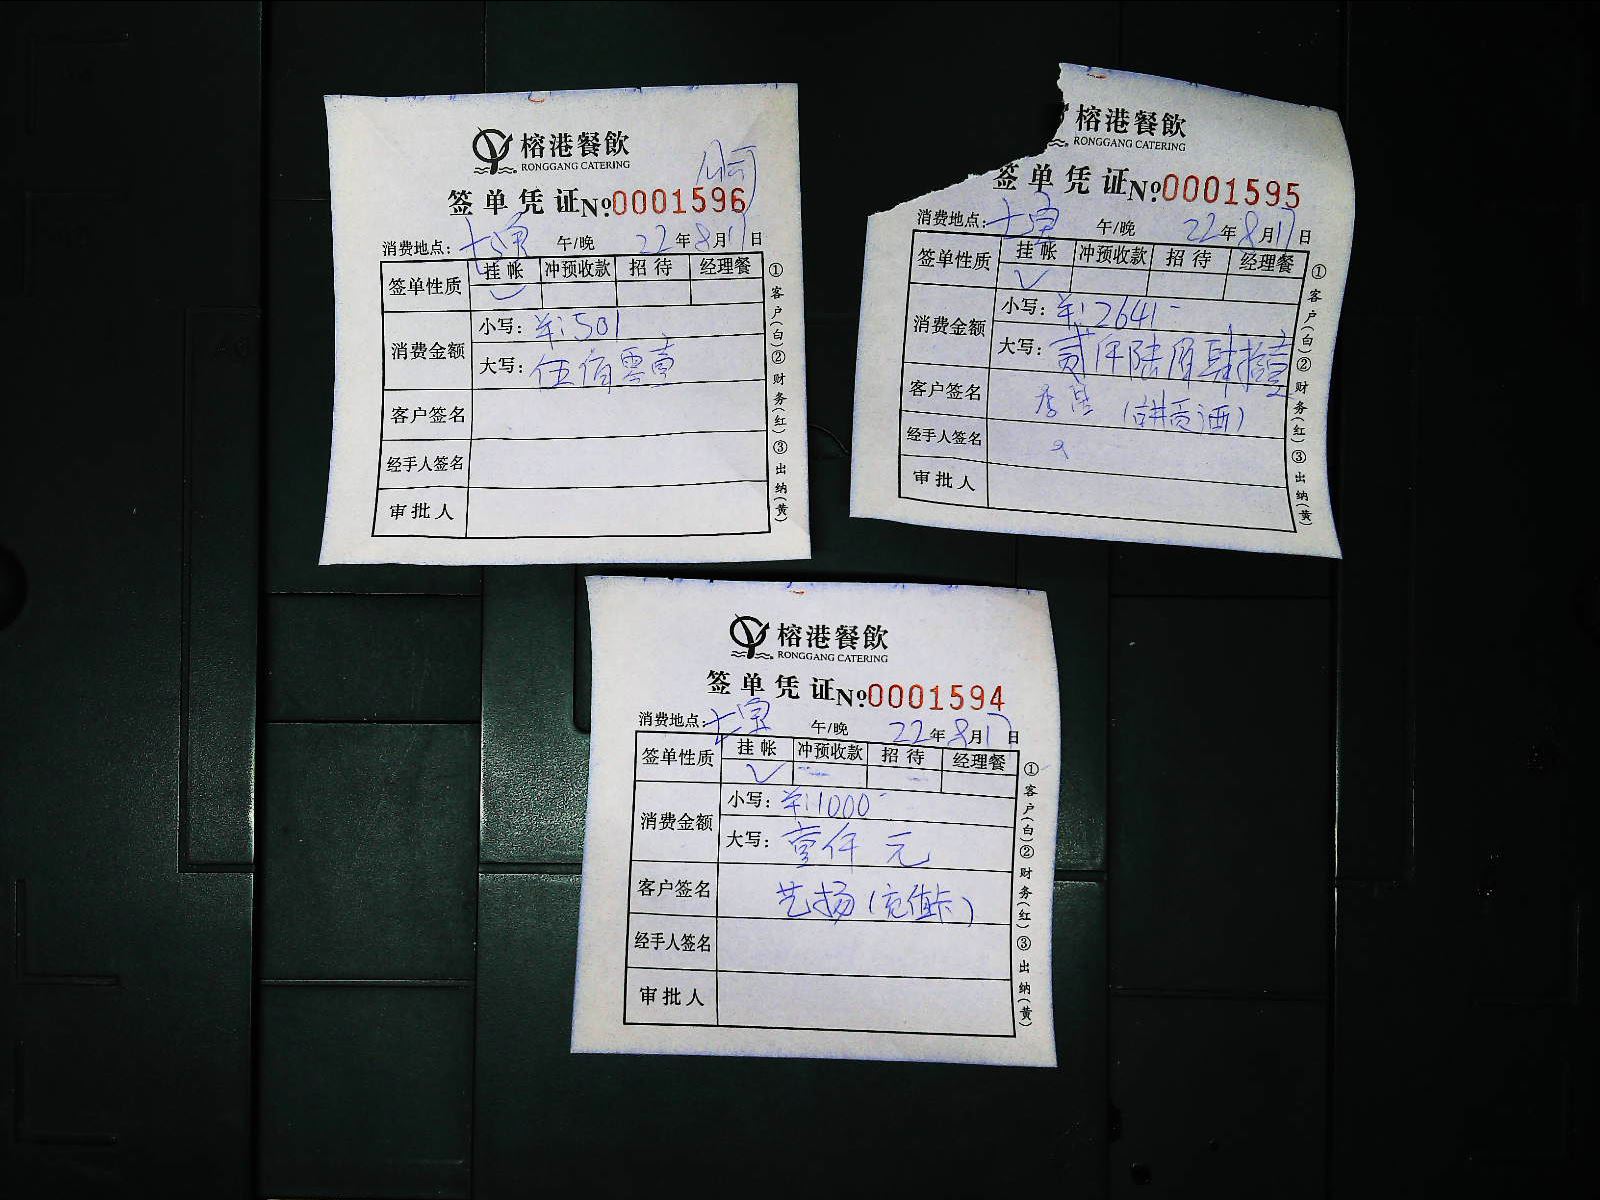 榕港餐飲
RONGGANG CATERING
签单凭证 №0001596
消费地点: 午/晚 22年8月17日
签单性质 挂帐 冲预收款 招待 经理餐
消费金额 小写: ¥:501
大写: 伍佰零壹
客户签名
经手人签名
审批人
①客户(白)②财务(红)③出纳(黄)
榕港餐飲
RONGGANG CATERING
签单凭证 №0001595
消费地点: 午/晚 22年8月17日
签单性质 挂帐 冲预收款 招待 经理餐
消费金额 小写: ¥:2641-
大写: 贰仟陆佰肆拾壹
客户签名
经手人签名
审批人
①客户(白)②财务(红)③出纳(黄)
榕港餐飲
RONGGANG CATERING
签单凭证 №0001594
消费地点: 午/晚 22年8月17日
签单性质 挂帐 冲预收款 招待 经理餐
消费金额 小写: ¥:1000-
大写: 壹仟元
客户签名 艺扬(充值卡)
经手人签名
审批人
①客户(白)②财务(红)③出纳(黄)